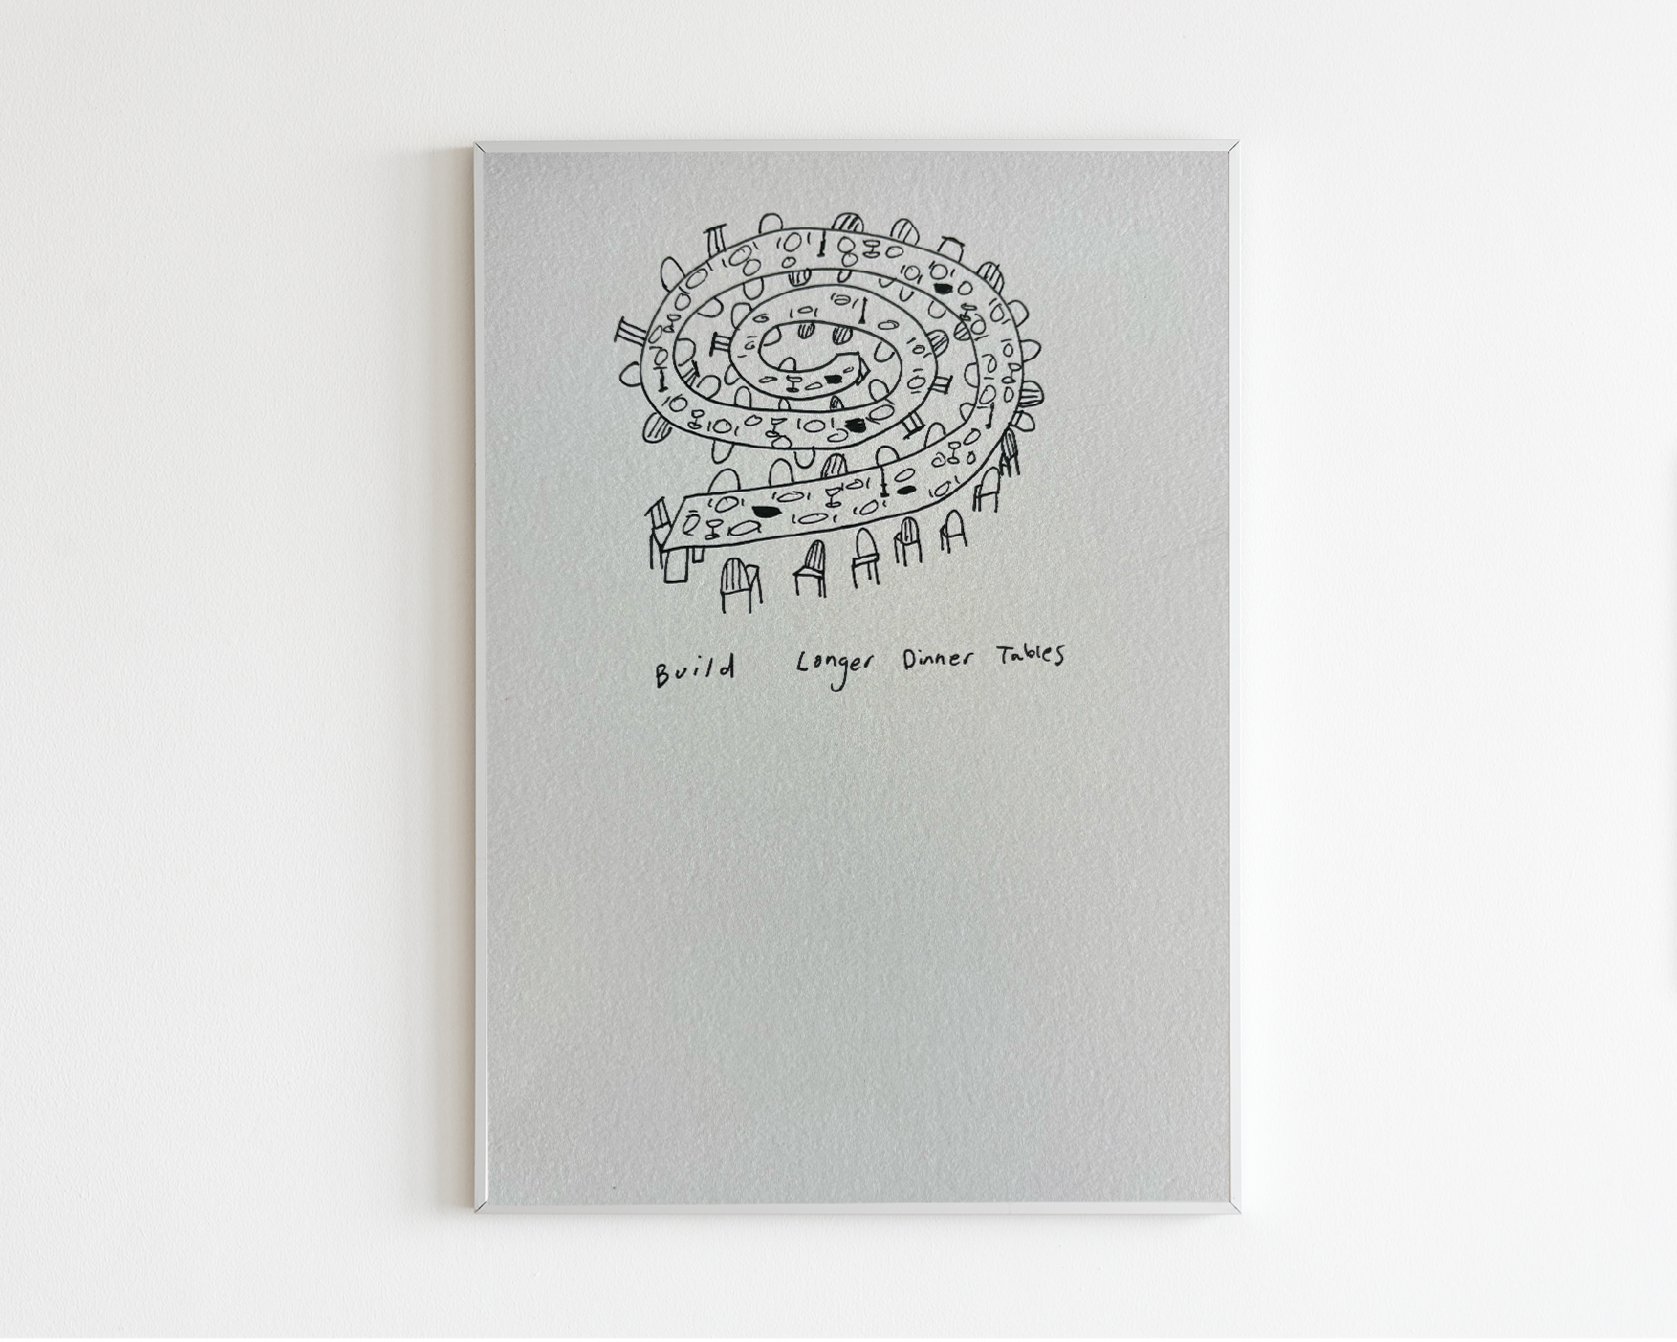 Build Longer Dinner Tables